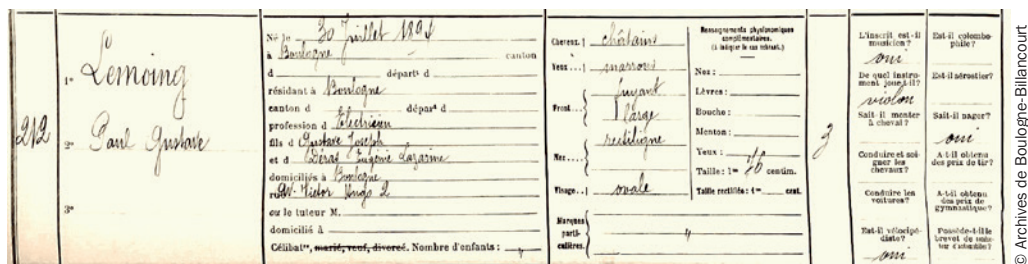 212
1º Lemoing
2º Paul Gustave
3º
Né le 30 Juillet 189
à Boulogne canton
d départt d
résidant à Boulogne
canton d départ d
profession d Electricien
fils d Gustave Joseph
et d Déras Eugénie Lazarine
domiciliés à Boulogne
rue Av. Victor Hugo 2
ou le tuteur M.
domicilié à
Célibat., marié, veuf, divorcé. Nombre d'enfants : "
Cheveux : châtains
Yeux... marrons
Front... fuyant
large
Nez... rectiligne
Visage... ovale
Marques particulières. "
Renseignements physionomiques
complémentaires.
(A indiquer le cas échéant.)
Nez :
Lèvres :
Bouche :
Menton :
Yeux :
Taille : 1m 76 centim.
Taille rectifiée : 1m cent.
3
L'inscrit est-il
musicien ?
oui
De quel instru-
ment joue-t-il ?
violon
Sait-il monter
à cheval ?
Conduire et soi-
gner les
chevaux ?
Conduire les
voitures ?
Est-il vélocipé-
diste ?
oui
Est-il colombo-
phile ?
Est-il aérostier ?
Sait-il nager ?
oui
A-t-il obtenu
des prix de tir ?
A-t-il obtenu
des prix de
gymnastique ?
Possède-t-il le
brevet de
© Archives de Boulogne-Billancourt